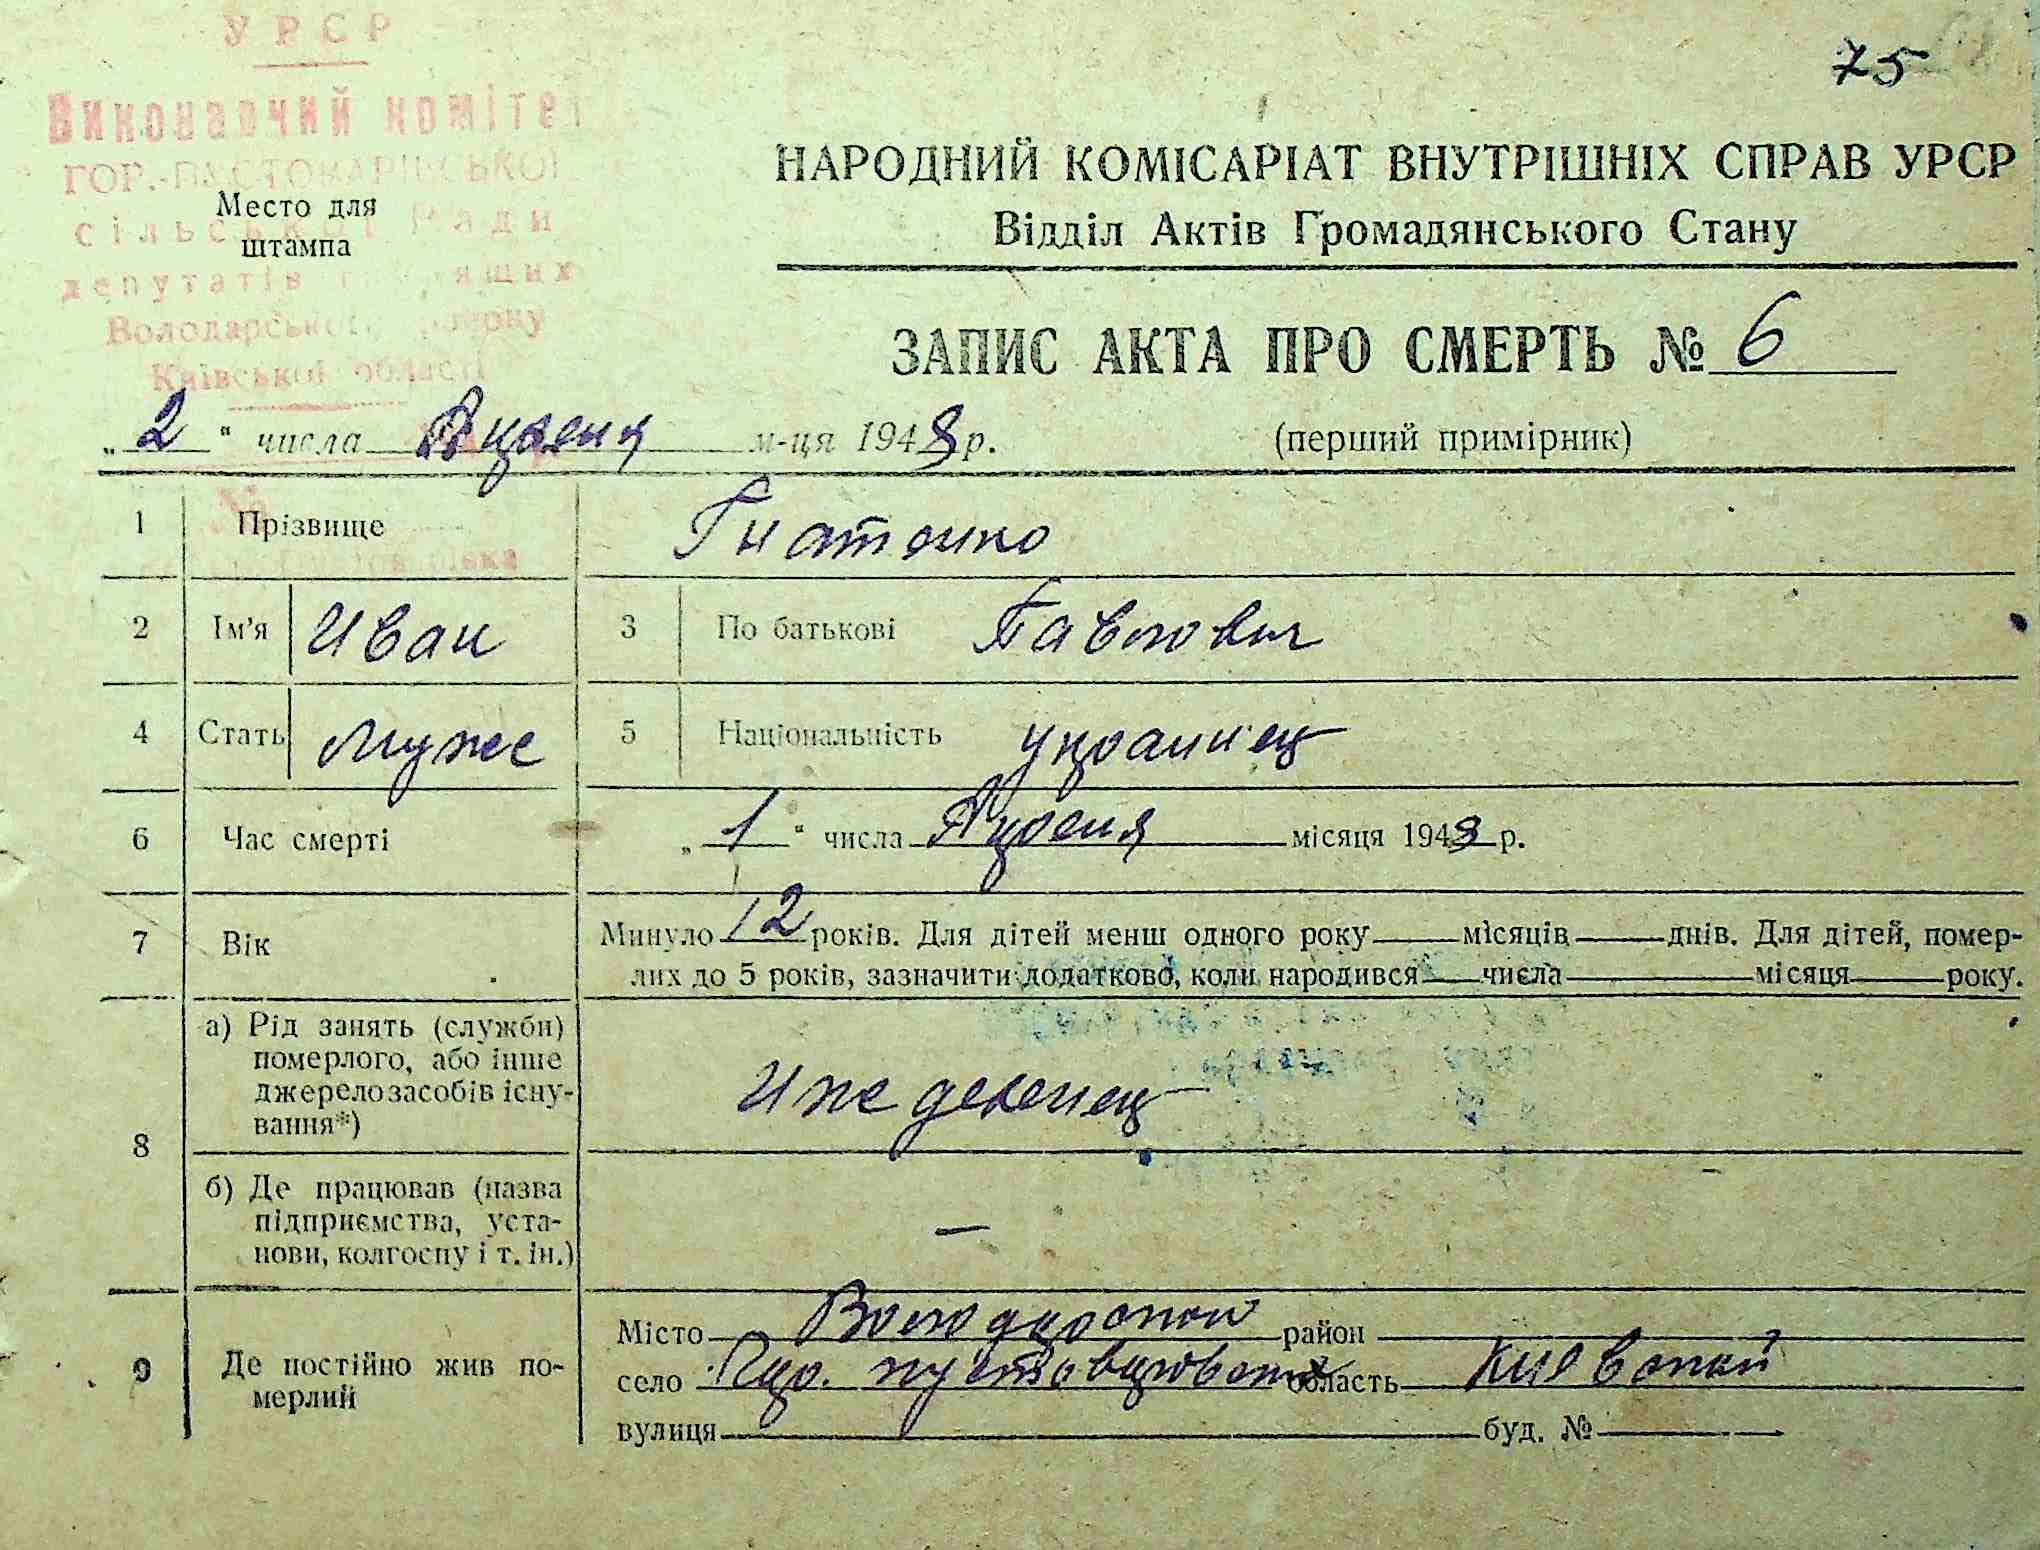 УРСР
75
Виконавчий комітет
ГОР.-ПУСТОВАРІВСЬКОЇ
сільської Ради
депутатів трудящих
Володарського району
Київської області
Место для
штампа
НАРОДНИЙ КОМІСАРІАТ ВНУТРІШНІХ СПРАВ УРСР
Відділ Актів Громадянського Стану
ЗАПИС АКТА ПРО СМЕРТЬ № 6
„2" числа Апреля м-ця 1948 р. (перший примірник)
1 Прізвище Гнатенко
2 Ім'я Иван 3 По батькові Павлович
4 Стать муже 5 Національність украинец
6 Час смерті „1" числа Апреля місяця 1948 р.
7 Вік Минуло 12 років. Для дітей менш одного року місяців днів. Для дітей, помер-
лих до 5 років, зазначити додатково, коли народився числа місяця року.
8 а) Рід занять (служби)
померлого, або інше
джерело засобів існу-
вання*)
Иждевенец
б) Де працював (назва
підприємства, уста-
нови, колгоспу і т. ін.)
—
9 Де постійно жив по-
мерлий
Місто Володарский район
село Гор. пустоваровская область Киевский
вулиця буд. №